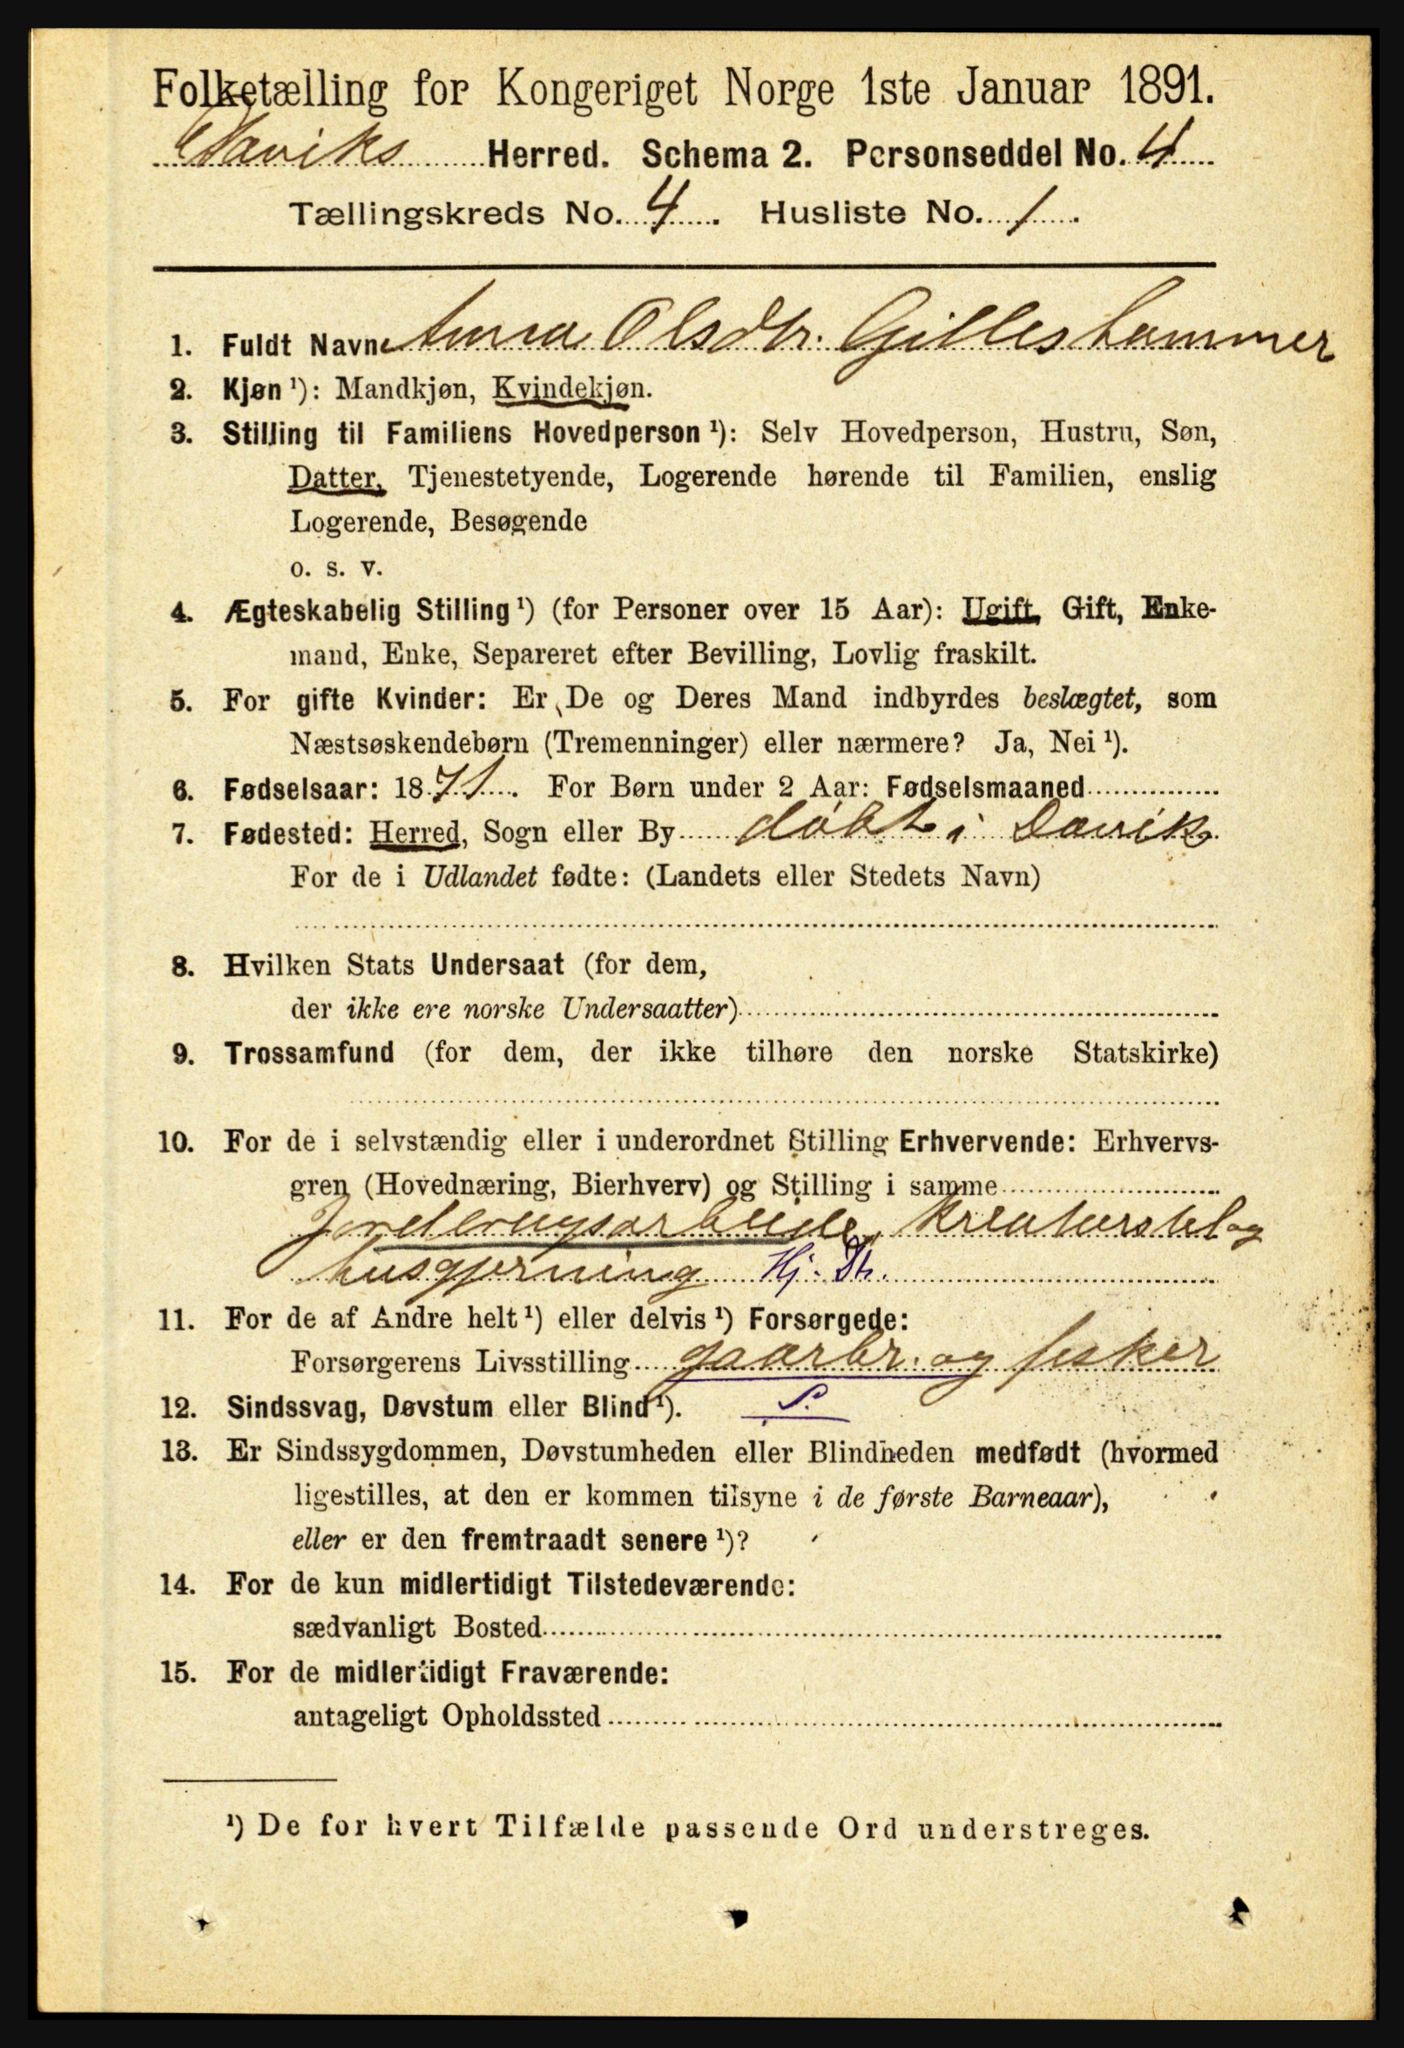 Folketælling for Kongeriget Norge 1ste Januar 1891.
Daviks Herred. Schema 2. Personseddel No. 4
Tællingskreds No. 4. Husliste No. 1.
1. Fuldt Navn Anna Olsdtr. Gilleshammer
2. Kjøn ¹): Mandkjøn, Kvindekjøn.
3. Stilling til Familiens Hovedperson ¹): Selv Hovedperson, Hustru, Søn,
Datter, Tjenestetyende, Logerende hørende til Familien, enslig
Logerende, Besøgende
o. s. v.
4. Ægteskabelig Stilling ¹) (for Personer over 15 Aar): Ugift, Gift, Enke-
mand, Enke, Separeret efter Bevilling, Lovlig fraskilt.
5. For gifte Kvinder: Er De og Deres Mand indbyrdes beslægtet, som
Næstsøskendebørn (Tremenninger) eller nærmere? Ja, Nei ¹).
6. Fødselsaar: 1871. For Børn under 2 Aar: Fødselsmaaned
7. Fødested: Herred, Sogn eller By døbt i Davik
For de i Udlandet fødte: (Landets eller Stedets Navn)
8. Hvilken Stats Undersaat (for dem,
der ikke ere norske Undersaatter)
9. Trossamfund (for dem, der ikke tilhøre den norske Statskirke)
10. For de i selvstændig eller i underordnet Stilling Erhvervende: Erhvervs-
gren (Hovednæring, Bierhverv) og Stilling i samme
Jordbrugsarbeide, kreaturstel og
husgjerning Hj. Dtr.
11. For de af Andre helt ¹) eller delvis ¹) Forsørgede:
Forsørgerens Livsstilling gaardbr. og fisker
12. Sindssvag, Døvstum eller Blind ¹). S.
13. Er Sindssygdommen, Døvstumheden eller Blindheden medfødt (hvormed
ligestilles, at den er kommen tilsyne i de første Barneaar),
eller er den fremtraadt senere ¹)?
14. For de kun midlertidigt Tilstedeværende:
sædvanligt Bosted
15. For de midlertidigt Fraværende:
antageligt Opholdssted
¹) De for hvert Tilfælde passende Ord understreges.